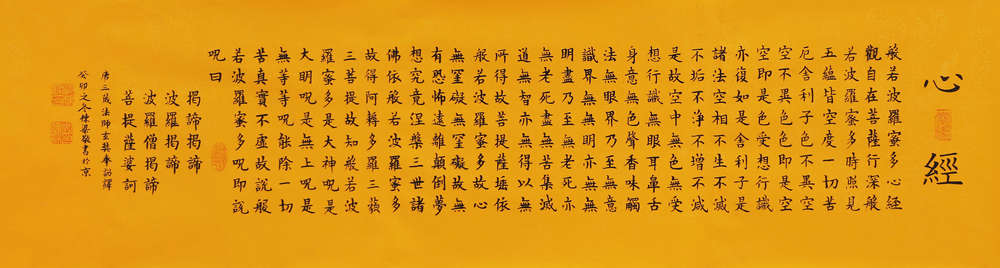 心經
般若波羅蜜多心経
觀自在菩薩行深般
若波羅蜜多時照見
五蘊皆空度一切苦
厄舍利子色不異空
空不異色色即是空
空即是色受想行識
亦復如是舍利子是
諸法空相不生不滅
不垢不淨不增不減
是故空中無色無受
想行識無眼耳鼻舌
身意無色聲香味觸
法無眼界乃至無意
識界無無明亦無無
明盡乃至無老死亦
無老死盡無苦集滅
道無智亦無得以無
所得故菩提薩埵依
般若波羅蜜多故心
無罣礙無罣礙故無
有恐怖遠離顛倒夢
想究竟涅槃三世諸
佛依般若波羅蜜多
故得阿耨多羅三藐
三菩提故知般若波
羅蜜多是大神呪是
大明呪是無上呪是
無等等呪能除一切
苦真實不虛故說般
若波羅蜜多呪即說
呪曰
揭諦揭諦
波羅揭諦
波羅僧揭諦
菩提薩婆訶
唐三藏法師玄奘奉詔譯
癸卯之冬棟梁敬書於京